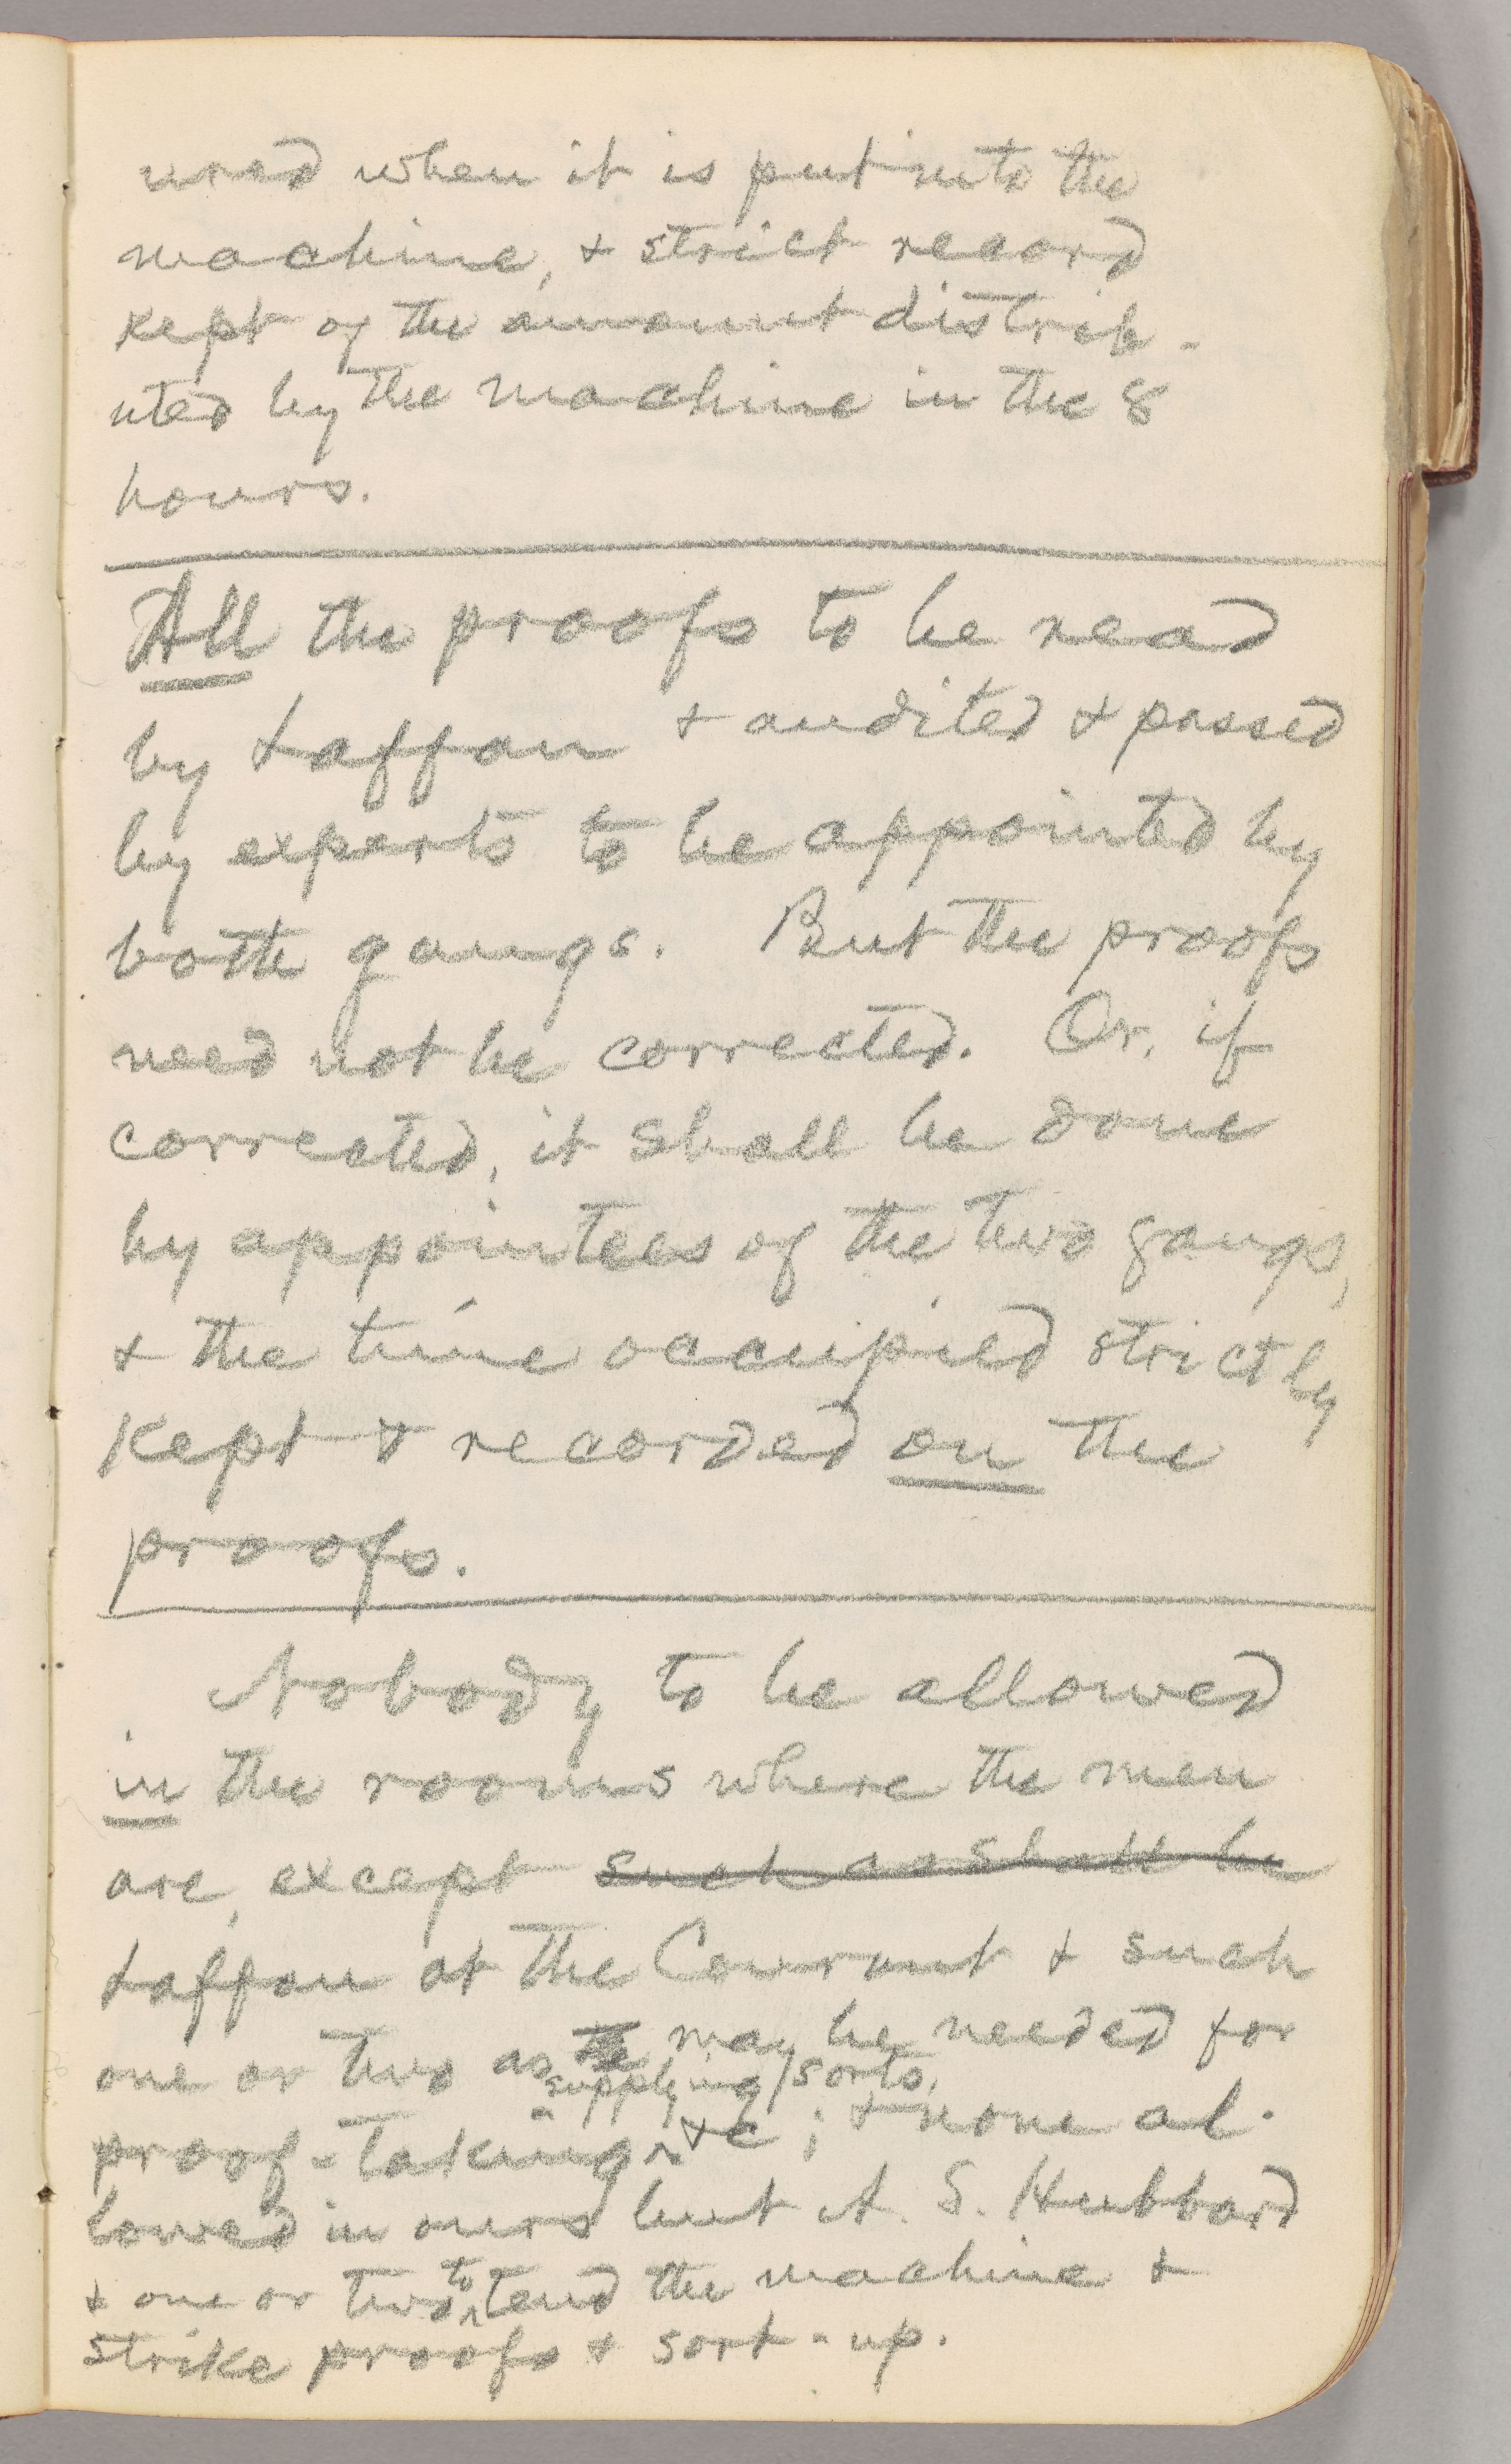 ured when it is put into the
machine, & strict record
kept of the amount distrib-
uted by the machine in the 8
hours.
All the proofs to be read
by Laffan & audited & passed
by experts to be appointed by
both gangs. But the proofs
need not be corrected. Or, if
corrected, it shall be done
by appointees of the two gangs,
& the time occupied strictly
kept & recorded on the
proofs.
Nobody to be allowed
in the rooms where the men
are, except such as shall be
Laffan at the Courant & such
one or two as may be needed for
supplying sorts,
proof-taking &c; & none al-
lowed in ours but A. S. Hubbard
& one or two to tend the machine &
strike proofs & sort-up.